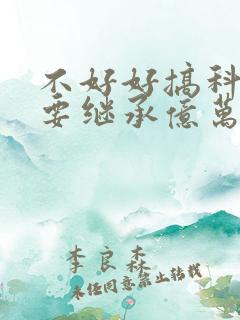 不好好搞科
要继承億萬
李良森
未经同意禁止转载